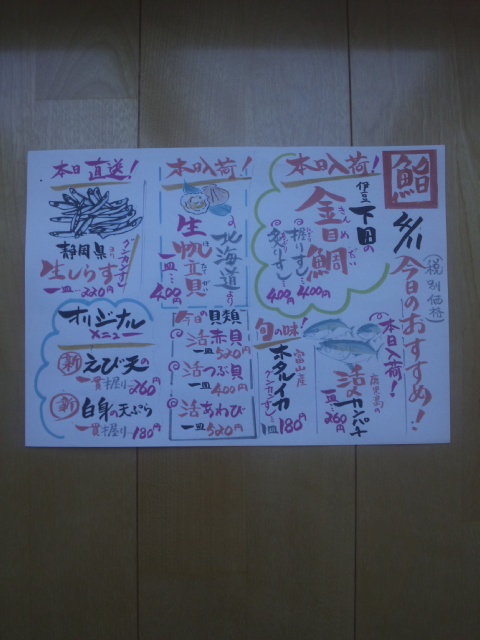 鮨
今日のおすすめ!
(税別価格)
本日入荷!
伊豆
下田の
金目鯛
きんめだい
握りずし 400円
炙りずし 400円
本日入荷!
鹿児島の
活〆カンパチ
一皿…260円
旬の味!
富山産
ホタルイカ
グンカンずし
一皿180円
本日入荷!
北海道より
生帆立貝
一皿…400円
今日の貝類
活赤貝
一皿520円
活つぶ貝
一皿400円
活あわび
一皿520円
本日直送!
静岡県より
生しらす
グンカンずし
一皿…220円
オリジナル
メニュー
新 えび天の
一貫握り 260円
新 白身の天ぷら
一貫握り 180円